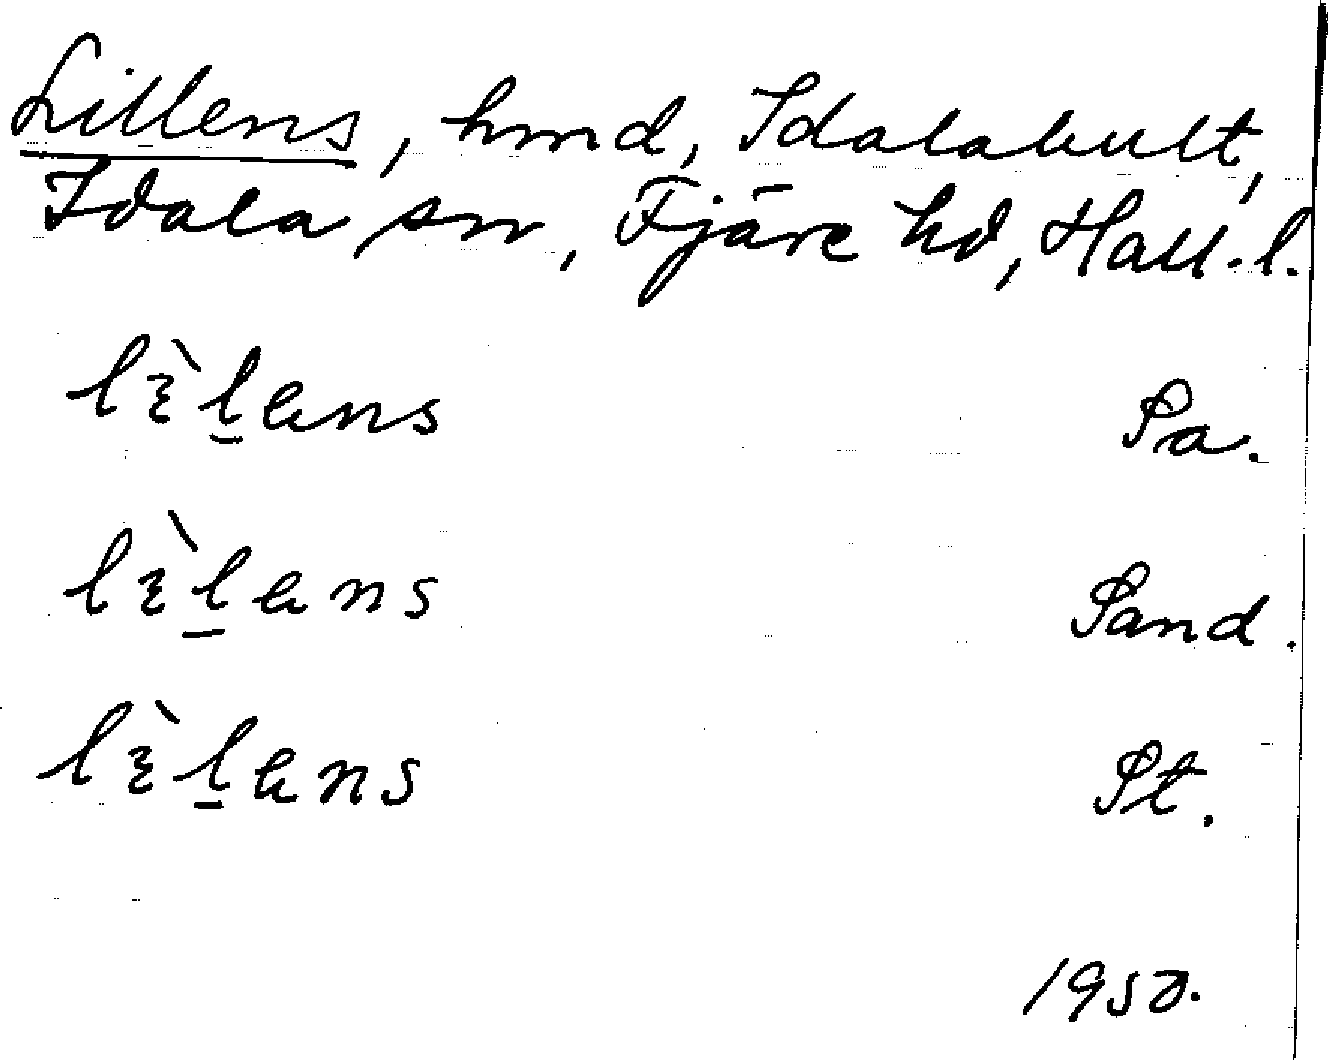 Lillens, hmd, Idalahult,
Idala sn, Fjäre hd, Hall. l.
lὲl̠ens Sa.
lὲl̠ens Sand.
lὲl̠ens St.
1950.